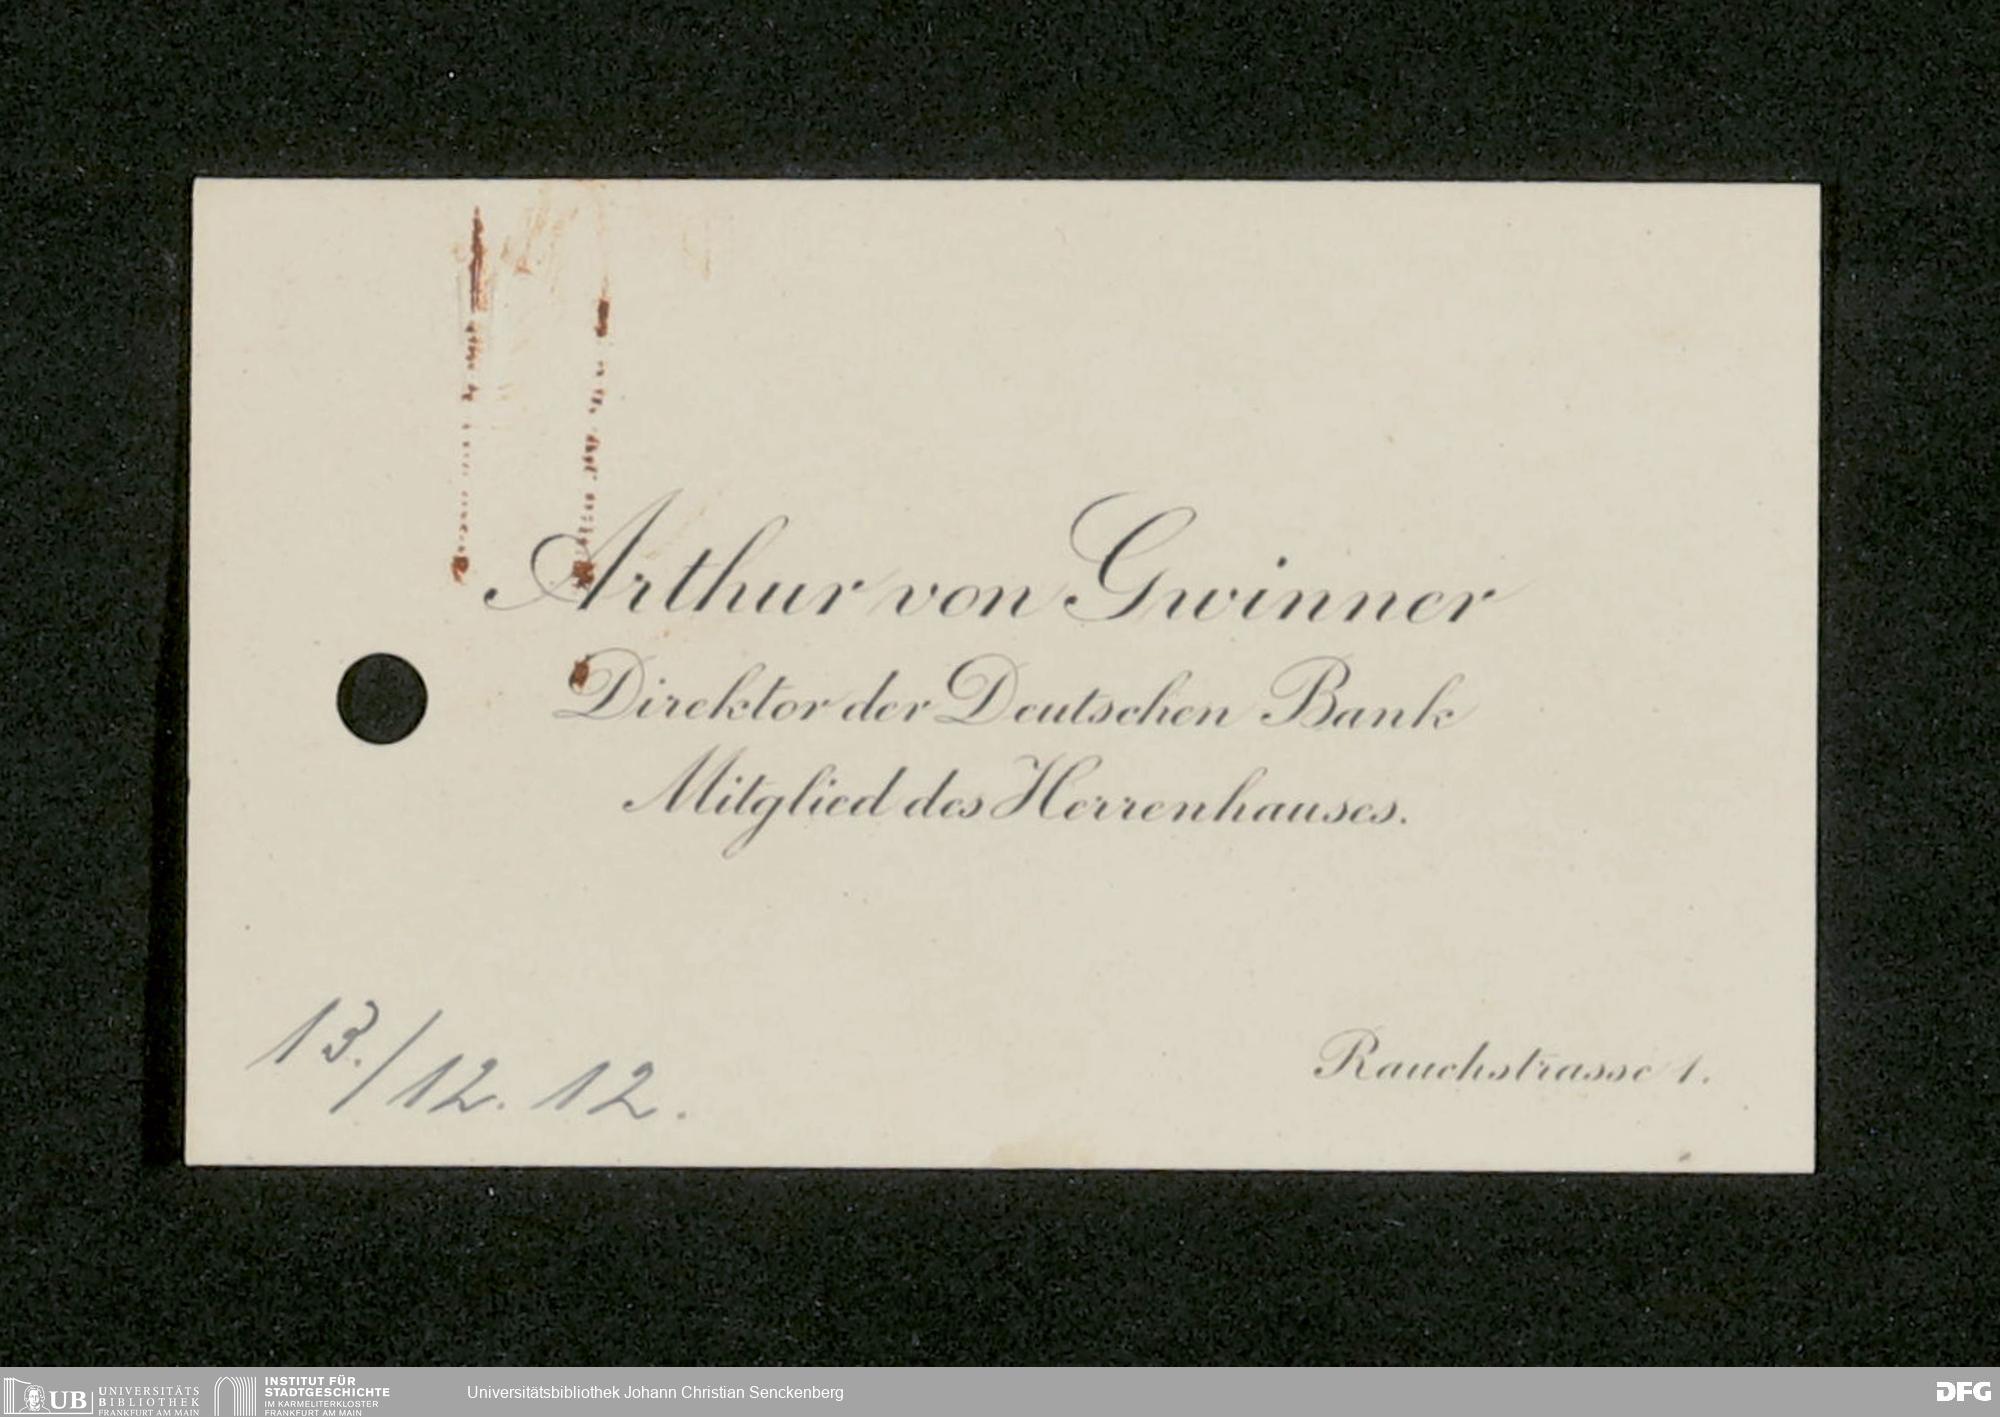 Arthur von Gwinner
Direktor der Deutschen Bank
Mitglied des Herrenhauses.
13./12. 12.
Rauchstrasse 1.
UB UNIVERSITÄTS BIBLIOTHEK FRANKFURT AM MAIN
INSTITUT FÜR
STADTGESCHICHTE
IM KARMELITERKLOSTER
FRANKFURT AM MAIN
Universitätsbibliothek Johann Christian Senckenberg
DFG